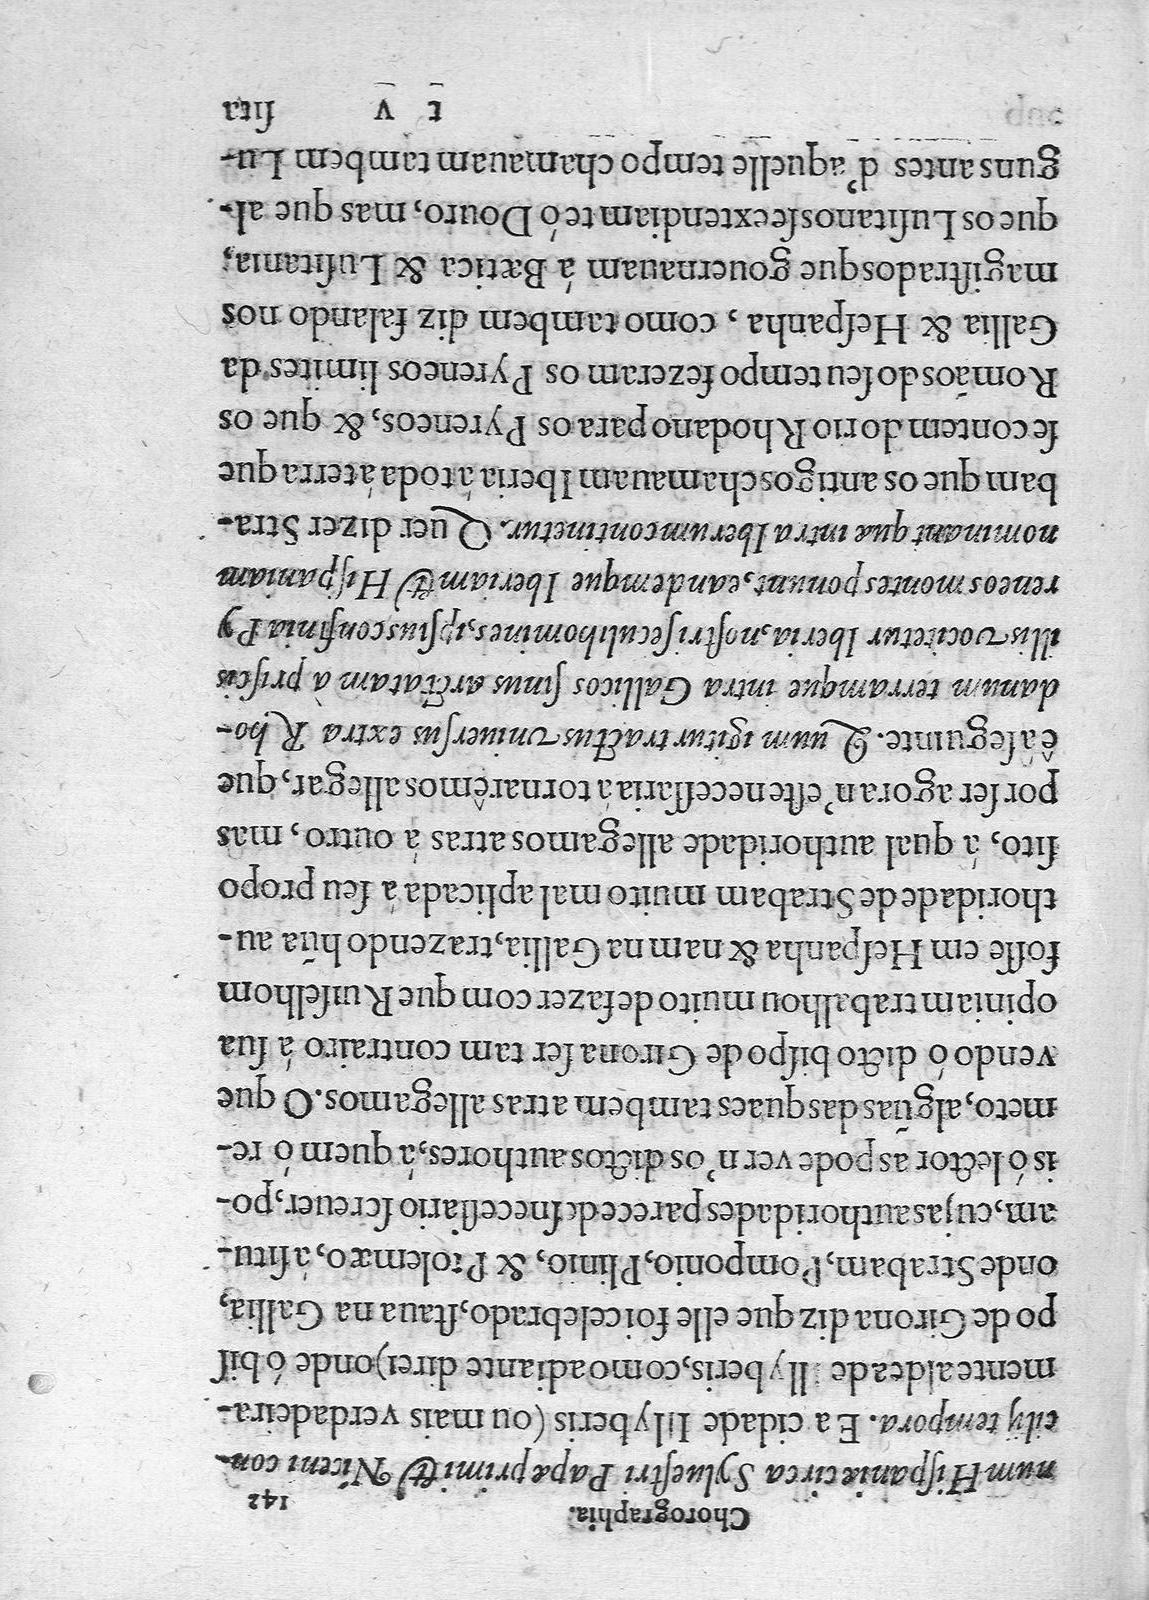 Chorographia. 142
num Hiſpaniæ circa Sylueſtri Papæ primi & Niceni con-
cilij tempora. E a cidade Illyberis (ou mais verdadeira-
mente aldea de Illyberis, como adiante direi) onde ó biſ
po de Girona diz que elle foi celebrado, ſtaua na Gallia,
onde Strabam, Pomponio, Plinio, & Ptolemæo, á ſitu-
am, cujas authoridades parece deſneceſſario ſcreuer, po-
is ó lector as pode ver n'os dictos authores, á quem ó re-
meto, algũas das quaes tambem atras allegamos. O que
vendo ó dicto biſpo de Girona ſer tam contrairo á ſua
opiniam trabalhou muito defazer com que Ruiſelhom
foſſe em Heſpanha & nam na Gallia, trazendo hũa au-
thoridade de Strabam muito mal aplicada á ſeu propo
ſito, á qual authoridade allegamos atras á outro, mas
por ſer agora n'eſte neceſſaria á tornarêmos allegar, que
ê a ſeguinte. Quum igitur tractus vniuerſus extra Rho-
danum terramque intra Gallicos ſinus arctatam à priſcis
illis vocitetur Iberia, noſtri ſeculi homines, ipſius confinia Py
reneos montes ponunt, eandemque Iberiam & Hiſpaniam
nominant quæ intra Iberum continetur. Quer dizer Stra-
bam que os antigos chamauam Iberia á toda á terra que
ſe contem do rio Rhodano para os Pyreneos, & que os
Romãos do ſeu tempo fezeram os Pyreneos limites da
Gallia & Heſpanha, como tambem diz falando nos
magiſtrados que gouernauam á Bætica & Luſitania,
que os Luſitanos ſe extendiam té ó Douro, mas que al-
guns antes d'aquelle tempo chamauam tambem Lu-
t v ſita